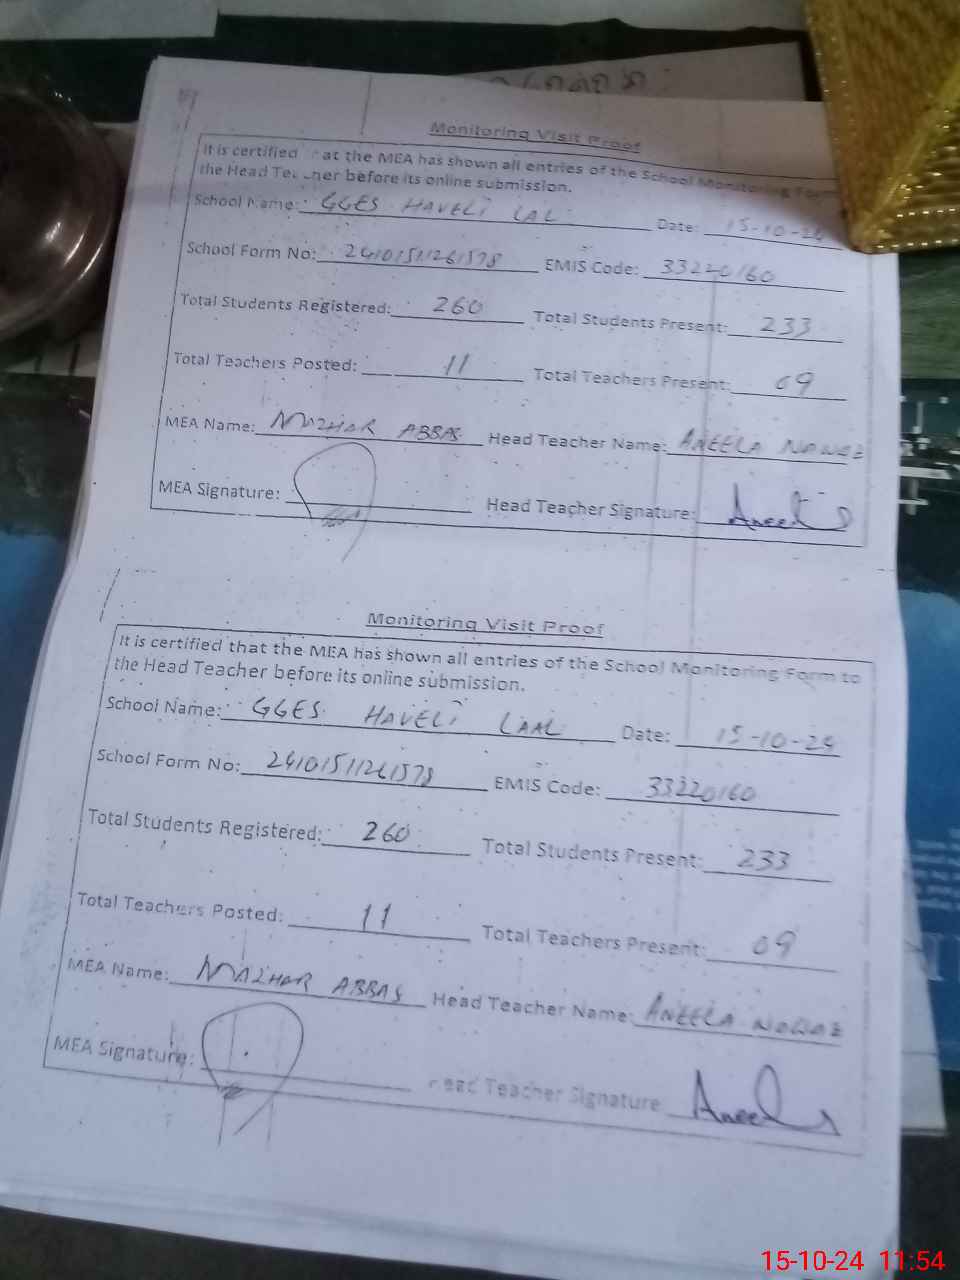 Monitoring Visit Proof
It is certified that the MEA has shown all entries of the School Monitoring Form
the Head Teacher before its online submission.
School Name: GGES HAVELI LAL Date: 15-10-24
School Form No: 24101511261578 EMIS Code: 33220160
Total Students Registered: 260 Total Students Present: 233
Total Teachers Posted: 11 Total Teachers Present: 09
MEA Name: MAZHAR ABBAS Head Teacher Name: ANEELA NAWAZ
MEA Signature: Head Teacher Signature:
Monitoring Visit Proof
It is certified that the MEA has shown all entries of the School Monitoring Form to
the Head Teacher before its online submission.
School Name: GGES HAVELI LAAL Date: 15-10-24
School Form No: 24101511261578 EMIS Code: 33220160
Total Students Registered: 260 Total Students Present: 233
Total Teachers Posted: 11 Total Teachers Present: 09
MEA Name: MAZHAR ABBAS Head Teacher Name: ANEELA NAWAZ
MEA Signature: Head Teacher Signature
15-10-24 11:54